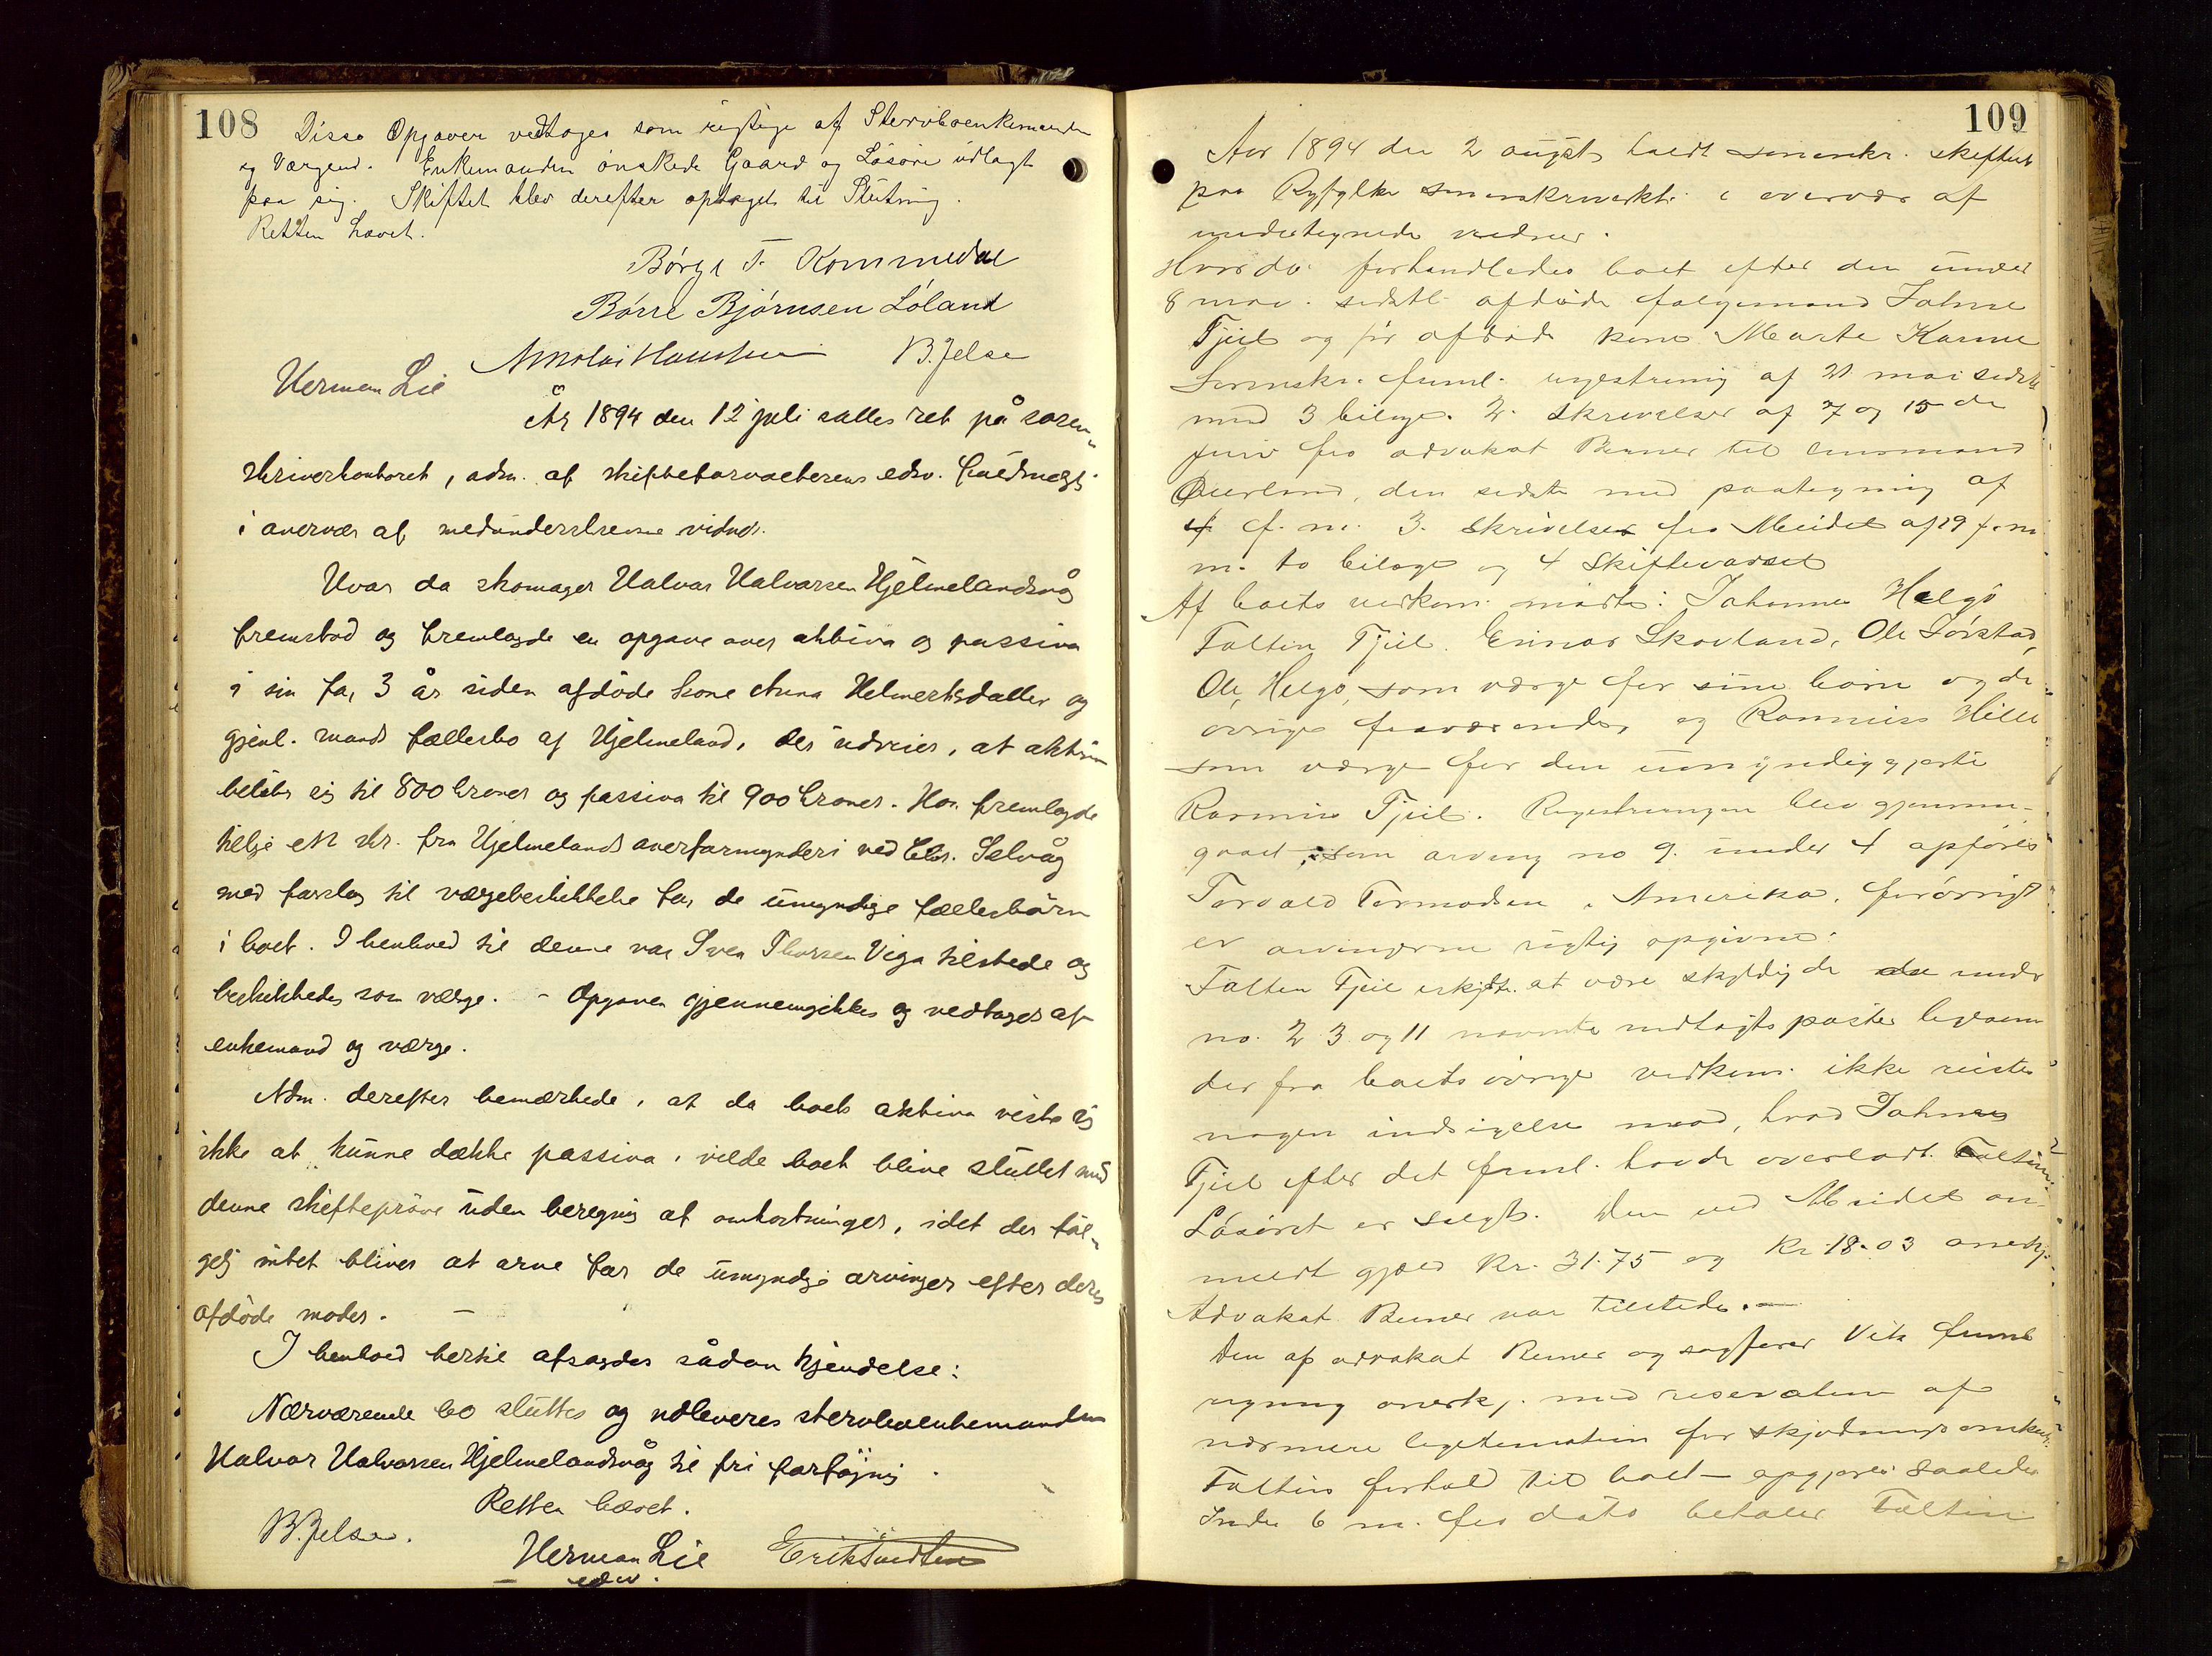 108
Disse Opgaver vedtoges som rigtige af Stervboenkemanden
og Værgen. Enkemanden ønskede Gaard og Løsøre udlagt
paa sig. Skiftet blev derefter optaget til Slutning.
Retten hævet.
Børge T. Kommedal
Børre Bjørnsen Løland
Herman Lie B. Jelsa
År 1894 den 12 juli sattes ret på soren-
skriverkontoret, adm. af skifteforvalterens edsv. fuldmægt.
i overvær af medunderskrevne vidner.
Hvor da skomager Halvor Halvorsen Hjelmelandsvåg
fremstod og fremlagde en opgave over aktiva og passiva
i sin for 3 år siden afdøde kone Anna Helmerksdatter og
gjenl. mands fællesbo af Hjelmeland, der udviser, at aktiva
beløber sig til 800 kroner og passiva til 900 kroner. Han fremlagde
tillige en skr. fra Hjelmelands overformynderi ved Selvåg
med forslag til værgebeskikkelse for de umyndige fællesbørn
i boet. I henhold til denne var Sven Thorsen Viga tilstede og
beskikkedes som værge. - Opgaven gjennemgikkes og vedtoges af
enkemand og værge.
Adm. derefter bemærkede, at da boets aktiva viste sig
ikke at kunne dække passiva, vilde boet blive sluttet med
denne skifteprøve uden beregning af omkostninger, idet der føl-
gelig intet bliver at arve for de umyndige arvinger efter deres
afdøde moder. -
I henhold hertil afsagdes sådan kjendelse:
Nærværende bo sluttes og udleveres stervboenkemanden
Halvor Halvorsen Hjelmelandsvåg til fri forføjning.
Retten hævet.
B. Jelsa. Herman Lie
edsv.
109
Aar 1894 den 2 august holdt sorenskr. skifteret
paa Ryfylke sorenskriverkt. i overvær af
undertegnede vidner.
Hvor da forhandledes boet efter den under
8 mai sidstl. afdøde følgemand Johannes
Fjeld og før afdøde kone Marte Karine
Sorenskr. freml. registrering af 21 mai sidstl.
med 3 bilage. 2. Skrivelser af 7 og 15de
juni fra advokat Berner til lensmand
den sidste med paategning af
f. m. 3. Skrivelse fra Meidel af 29 f. m.
m. to bilage og 4 Skiftevarsel
Af boets vedkom. mødte: Johannes Helgø
Tollin Fjeld. Einar Skovland, Ole Sørstad,
Ole Helgø, som værge for sine børn og de
øvrige fraværende, og Rasmus Hille
som værge for den umyndiggjorte
Rasmus Fjeld. Registreringen blev gjennem-
gaaet, som arving no 9. under 4 opføres
Torvald Tormodsen, Amerika. forøvrigt
er arvingerne rigtig opgivne.
Fjeld erkjdte. at være skyldig de under
no. 2 3 og 11 nævnte indtægtsposter ligesom
der fra boets øvrige vedkom. ikke reistes
nogen indsigelse mod, hvad Johannes
Fjeld efter det freml. havde overladt
Løsøret er solgt. Den ved Meidel an-
meldt gjæld kr. 31.75 og kr. 18.03 anerkj.
Advokat Berner var tilstede. -
Den af advokat Berner og sagfører freml.
regning anerkj. med reservation af
nærmere legitimation for skjødningsomkost.
forhold til boet opgjøres saaledes
Inden 6 m. fra dato betaler